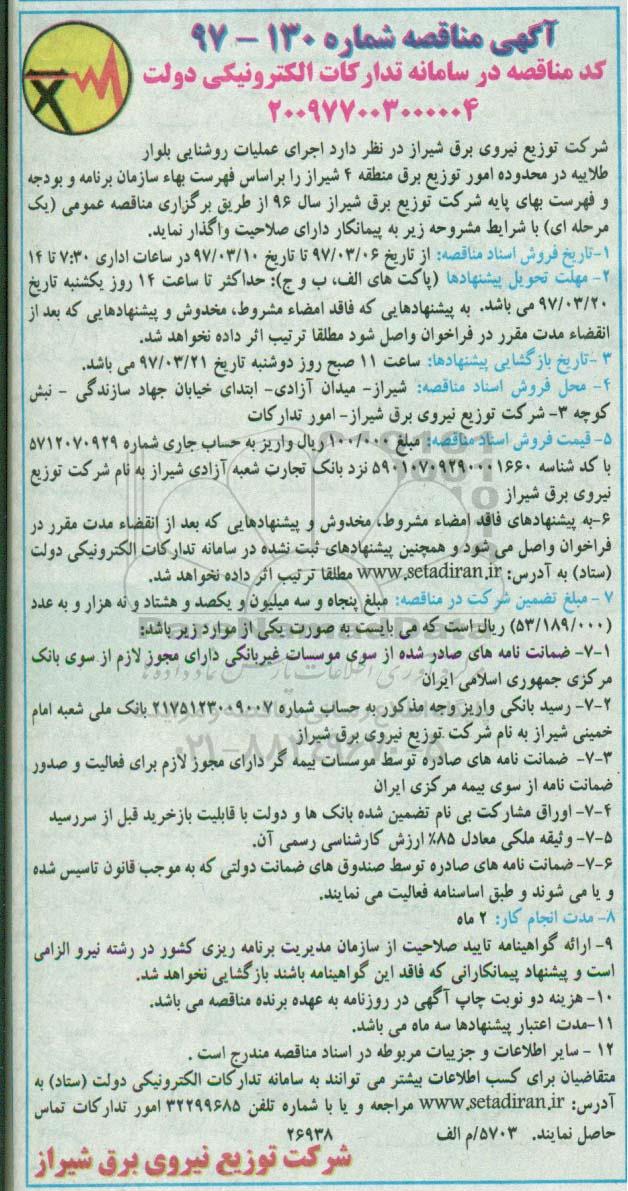 آگهی مناقصه شماره ۱۳۰ - ۹۷
کد مناقصه در سامانه تدارکات الکترونیکی دولت
۲۰۰۹۷۷۰۰۳۰۰۰۰۰۴
شرکت توزیع نیروی برق شیراز در نظر دارد اجرای عملیات روشنایی بلوار
طلاییه در محدوده امور توزیع برق منطقه ۴ شیراز را براساس فهرست بهاء سازمان برنامه و بودجه
و فهرست بهای پایه شرکت توزیع برق شیراز سال ۹۶ از طریق برگزاری مناقصه عمومی (یک
مرحله ای) با شرایط مشروحه زیر به پیمانکار دارای صلاحیت واگذار نماید.
۱-تاریخ فروش اسناد مناقصه: از تاریخ ۹۷/۰۳/۰۶ تا تاریخ ۹۷/۰۳/۱۰ در ساعات اداری ۷:۳۰ تا ۱۴
۲- مهلت تحویل پیشنهادها (پاکت های الف، ب و ج): حداکثر تا ساعت ۱۴ روز یکشنبه تاریخ
۹۷/۰۳/۲۰ می باشد. به پیشنهادهایی که فاقد امضاء مشروط، مخدوش و پیشنهادهایی که بعد از
انقضاء مدت مقرر در فراخوان واصل شود مطلقا ترتیب اثر داده نخواهد شد.
۳ -تاریخ بازگشایی پیشنهادها: ساعت ۱۱ صبح روز دوشنبه تاریخ ۹۷/۰۳/۲۱ می باشد.
۴- محل فروش اسناد مناقصه: شیراز- میدان آزادی- ابتدای خیابان جهاد سازندگی - نبش
کوچه ۳- شرکت توزیع نیروی برق شیراز- امور تدارکات
۵- قیمت فروش اسناد مناقصه: مبلغ ۱۰۰/۰۰۰ ریال واریز به حساب جاری شماره ۵۷۱۲۰۷۰۹۲۹
با کد شناسه ۵۹۰۱۰۷۰۹۲۹۰۰۰۱۶۶۰ نزد بانک تجارت شعبه آزادی شیراز به نام شرکت توزیع
نیروی برق شیراز
۶-به پیشنهادهای فاقد امضاء مشروط، مخدوش و پیشنهادهایی که بعد از انقضاء مدت مقرر در
فراخوان واصل می شود و همچنین پیشنهادهای ثبت نشده در سامانه تدارکات الکترونیکی دولت
(ستاد) به آدرس: www.setadiran.ir مطلقا ترتیب اثر داده نخواهد شد.
۷ - مبلغ تضمین شرکت در مناقصه: مبلغ پنجاه و سه میلیون و یکصد و هشتاد و نه هزار و به عدد
(۵۳/۱۸۹/۰۰۰) ریال است که می بایست به صورت یکی از موارد زیر باشد:
۷-۱- ضمانت نامه های صادر شده از سوی موسسات غیربانکی دارای مجوز لازم از سوی بانک
مرکزی جمهوری اسلامی ایران
۷-۲- رسید بانکی واریز وجه مذکور به حساب شماره ۲۱۷۵۱۲۳۰۰۹۰۰۷ بانک ملی شعبه امام
خمینی شیراز به نام شرکت توزیع نیروی برق شیراز
۷-۳- ضمانت نامه های صادره توسط موسسات بیمه گر دارای مجوز لازم برای فعالیت و صدور
ضمانت نامه از سوی بیمه مرکزی ایران
۷-۴- اوراق مشارکت بی نام تضمین شده بانک ها و دولت با قابلیت بازخرید قبل از سررسید
۷-۵- وثیقه ملکی معادل ۸۵٪ ارزش کارشناسی رسمی آن.
۷-۶- ضمانت نامه های صادره توسط صندوق های ضمانت دولتی که به موجب قانون تاسیس شده
و یا می شوند و طبق اساسنامه فعالیت می نمایند.
۸- مدت انجام کار: ۲ ماه
۹- ارائه گواهینامه تایید صلاحیت از سازمان مدیریت برنامه ریزی کشور در رشته نیرو الزامی
است و پیشنهاد پیمانکارانی که فاقد این گواهینامه باشند بازگشایی نخواهد شد.
۱۰- هزینه دو نوبت چاپ آگهی در روزنامه به عهده برنده مناقصه می باشد.
۱۱-مدت اعتبار پیشنهادها سه ماه می باشد.
۱۲ - سایر اطلاعات و جزییات مربوطه در اسناد مناقصه مندرج است .
متقاضیان برای کسب اطلاعات بیشتر می توانند به سامانه تدارکات الکترونیکی دولت (ستاد) به
آدرس: www.setadiran.ir مراجعه و یا با شماره تلفن ۳۲۲۹۹۶۸۵ امور تدارکات تماس
حاصل نمایند. ۵۷۰۳/م الف ۲۶۹۳۸
شرکت توزیع نیروی برق شیراز